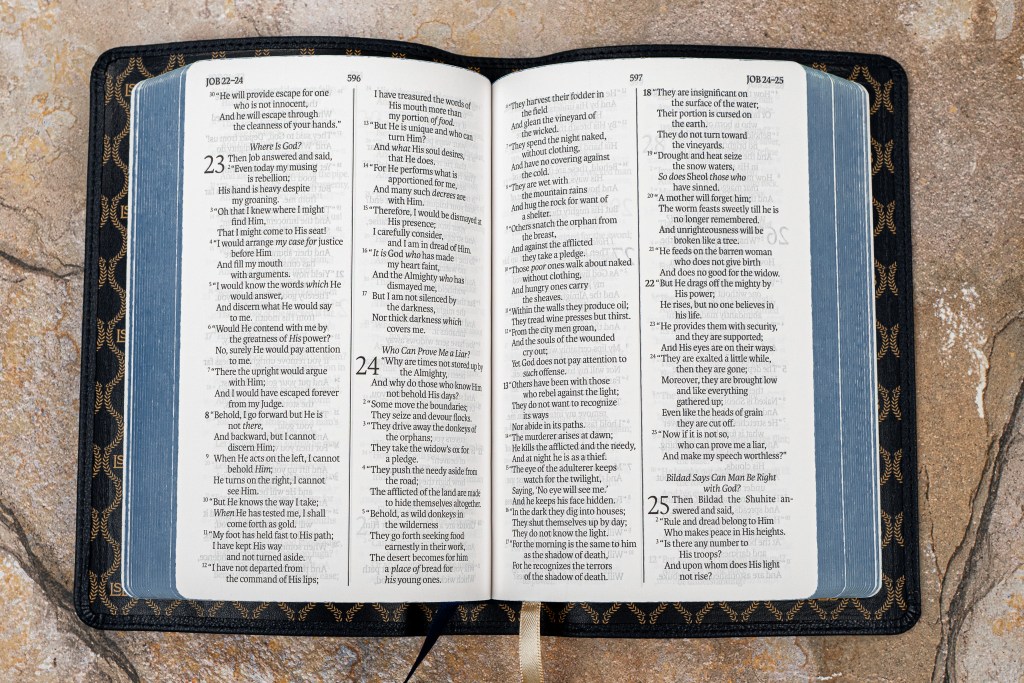 JOB 22–24
596
10 “He will provide escape for one
who is not innocent,
And he will escape through
the cleanness of your hands.”
Where Is God?
23 Then Job answered and said,
2 “Even today my musing
is rebellion;
His hand is heavy despite
my groaning.
3 “Oh that I knew where I might
find Him,
That I might come to His seat!
4 “I would arrange my case for justice
before Him
And fill my mouth
with arguments.
5 “I would know the words which He
would answer,
And discern what He would say
to me.
6 “Would He contend with me by
the greatness of His power?
No, surely He would pay attention
to me.
7 “There the upright would argue
with Him;
And I would have escaped forever
from my Judge.
8 “Behold, I go forward but He is
not there,
And backward, but I cannot
discern Him;
9 When He acts on the left, I cannot
behold Him;
He turns on the right, I cannot
see Him.
10 “But He knows the way I take;
When He has tested me, I shall
come forth as gold.
11 “My foot has held fast to His path;
I have kept His way
and not turned aside.
12 “I have not departed from
the command of His lips;
I have treasured the words of
His mouth more than
my portion of food.
13 “But He is unique and who can
turn Him?
And what His soul desires,
that He does.
14 “For He performs what is
apportioned for me,
And many such decrees are
with Him.
15 “Therefore, I would be dismayed at
His presence;
I carefully consider,
and I am in dread of Him.
16 “It is God who has made
my heart faint,
And the Almighty who has
dismayed me,
17 But I am not silenced by
the darkness,
Nor thick darkness which
covers me.
Who Can Prove Me a Liar?
24 “Why are times not stored up by
the Almighty,
And why do those who know Him
not behold His days?
2 “Some move the boundaries;
They seize and devour flocks.
3 “They drive away the donkeys of
the orphans;
They take the widow’s ox for
a pledge.
4 “They push the needy aside from
the road;
The afflicted of the land are made
to hide themselves altogether.
5 “Behold, as wild donkeys in
the wilderness
They go forth seeking food
earnestly in their work,
The desert becomes for him
a place of bread for
his young ones.
597
JOB 24–25
6 “They harvest their fodder in
the field
And glean the vineyard of
the wicked.
7 “They spend the night naked,
without clothing,
And have no covering against
the cold.
8 “They are wet with
the mountain rains
And hug the rock for want of
a shelter.
9 “Others snatch the orphan from
the breast,
And against the afflicted
they take a pledge.
10 “Those poor ones walk about naked
without clothing,
And hungry ones carry
the sheaves.
11 “Within the walls they produce oil;
They tread wine presses but thirst.
12 “From the city men groan,
And the souls of the wounded
cry out;
Yet God does not pay attention to
such offense.
13 “Others have been with those
who rebel against the light;
They do not want to recognize
its ways
Nor abide in its paths.
14 “The murderer arises at dawn;
He kills the afflicted and the needy,
And at night he is as a thief.
15 “The eye of the adulterer keeps
watch for the twilight,
Saying, ‘No eye will see me.’
And he keeps his face hidden.
16 “In the dark they dig into houses;
They shut themselves up by day;
They do not know the light.
17 “For the morning is the same to him
as the shadow of death,
For he recognizes the terrors
of the shadow of death.
18 “They are insignificant on
the surface of the water;
Their portion is cursed on
the earth.
They do not turn toward
the vineyards.
19 “Drought and heat seize
the snow waters,
So does Sheol those who
have sinned.
20 “A mother will forget him;
The worm feasts sweetly till he is
no longer remembered.
And unrighteousness will be
broken like a tree.
21 “He feeds on the barren woman
who does not give birth
And does no good for the widow.
22 “But He drags off the mighty by
His power;
He rises, but no one believes in
his life.
23 “He provides them with security,
and they are supported;
And His eyes are on their ways.
24 “They are exalted a little while,
then they are gone;
Moreover, they are brought low
and like everything
gathered up;
Even like the heads of grain
they are cut off.
25 “Now if it is not so,
who can prove me a liar,
And make my speech worthless?”
Bildad Says Can Man Be Right
with God?
25 Then Bildad the Shuhite an-
swered and said,
2 “Rule and dread belong to Him
Who makes peace in His heights.
3 “Is there any number to
His troops?
And upon whom does His light
not rise?